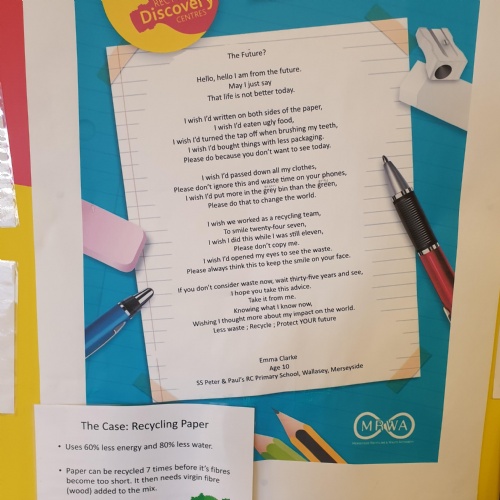 Discovery
CENTRES
The Future?
Hello, hello I am from the future.
May I just say
That life is not better today.
I wish I'd written on both sides of the paper,
I wish I'd eaten ugly food,
I wish I'd turned the tap off when brushing my teeth,
I wish I'd bought things with less packaging.
Please do because you don't want to see today.
I wish I'd passed down all my clothes,
Please don't ignore this and waste time on your phones,
I wish I'd put more in the grey bin than the green,
Please do that to change the world.
I wish we worked as a recycling team,
To smile twenty-four seven,
I wish I did this while I was still eleven,
Please don't copy me.
I wish I'd opened my eyes to see the waste.
Please always think this to keep the smile on your face.
If you don't consider waste now, wait thirty-five years and see,
I hope you take this advice.
Take it from me.
Knowing what I know now,
Wishing I thought more about my impact on the world.
Less waste ; Recycle ; Protect YOUR future
Emma Clarke
Age 10
SS Peter & Paul's RC Primary School, Wallasey, Merseyside
MRWA
The Case: Recycling Paper
• Uses 60% less energy and 80% less water.
• Paper can be recycled 7 times before it's fibres
become too short. It then needs virgin fibre
(wood) added to the mix.